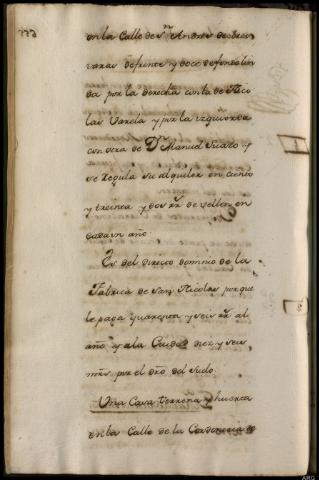 en la Calle de Sn Andres de seis
varas de frente y doce de fondo lin
da por la derecha con la de Nico
las Varela y por la izquierda
con otra de Dn Manuel y
se regula su alquiler en ciento
y treinta y dos rrs de vellon en
cada un año
Es del directo dominio de la
Fabrica de San Nicolas porque
le paga quarenta y seis rrs al
año y ala Ciudad diez y seis
mrs por el dro del suelo.
Una Casa terrena y huerta
en la Calle de la Cordoneria de